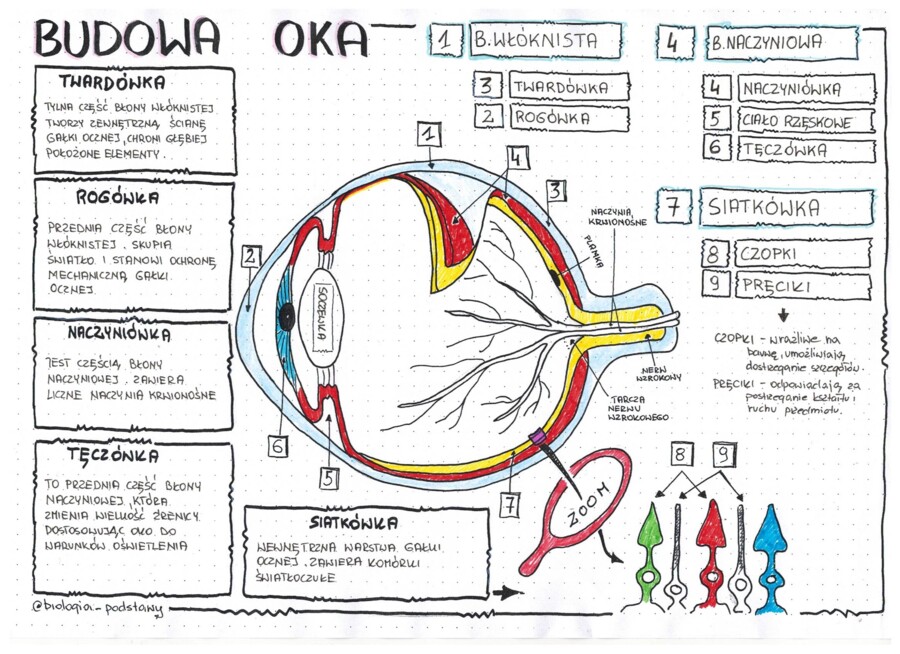 BUDOWA OKA
TWARDÓWKA
TYLNA CZĘŚĆ BŁONY WŁÓKNISTEJ
TWORZY ZEWNĘTRZNĄ ŚCIANĘ
GAŁKI OCZNEJ, CHRONI GŁĘBIEJ
POŁOŻONE ELEMENTY.
ROGÓWKA
PRZEDNIA CZĘŚĆ BŁONY
WŁÓKNISTEJ. SKUPIA
ŚWIATŁO I STANOWI OCHRONĘ
MECHANICZNĄ GAŁKI
OCZNEJ.
NACZYNIÓWKA
JEST CZĘŚCIĄ BŁONY
NACZYNIOWEJ, ZAWIERA
LICZNE NACZYNIA KRWIONOŚNE
TĘCZÓWKA
TO PRZEDNIA CZĘŚĆ BŁONY
NACZYNIOWEJ, KTÓRA
ZMIENIA WIELKOŚĆ ŹRENICY
DOSTOSOWUJĄC OKO DO
WARUNKÓW OŚWIETLENIA
@biologia_podstawy
SIATKÓWKA
WEWNĘTRZNA WARSTWA GAŁKI
OCZNEJ. ZAWIERA KOMÓRKI
ŚWIATŁOCZUŁE
1 B.WŁÓKNISTA
3 TWARDÓWKA
2 ROGÓWKA
4 B.NACZYNIOWA
4 NACZYNIÓWKA
5 CIAŁO RZĘSKOWE
6 TĘCZÓWKA
7 SIATKÓWKA
8 CZOPKI
9 PRĘCIKI
CZOPKI - wrażliwe na
barwę, umożliwiają
dostrzeganie szczegółów.
PRĘCIKI - odpowiadają za
postrzeganie kształtu i
ruchu przedmiotu.
1
4
3
2
NACZYNIA
KRWIONOŚNE
PLAMKA
SOCZEWKA
NERW
WZROKOWY
TARCZA
NERWU
WZROKOWEGO
6
5
7
ZOOM
8
9